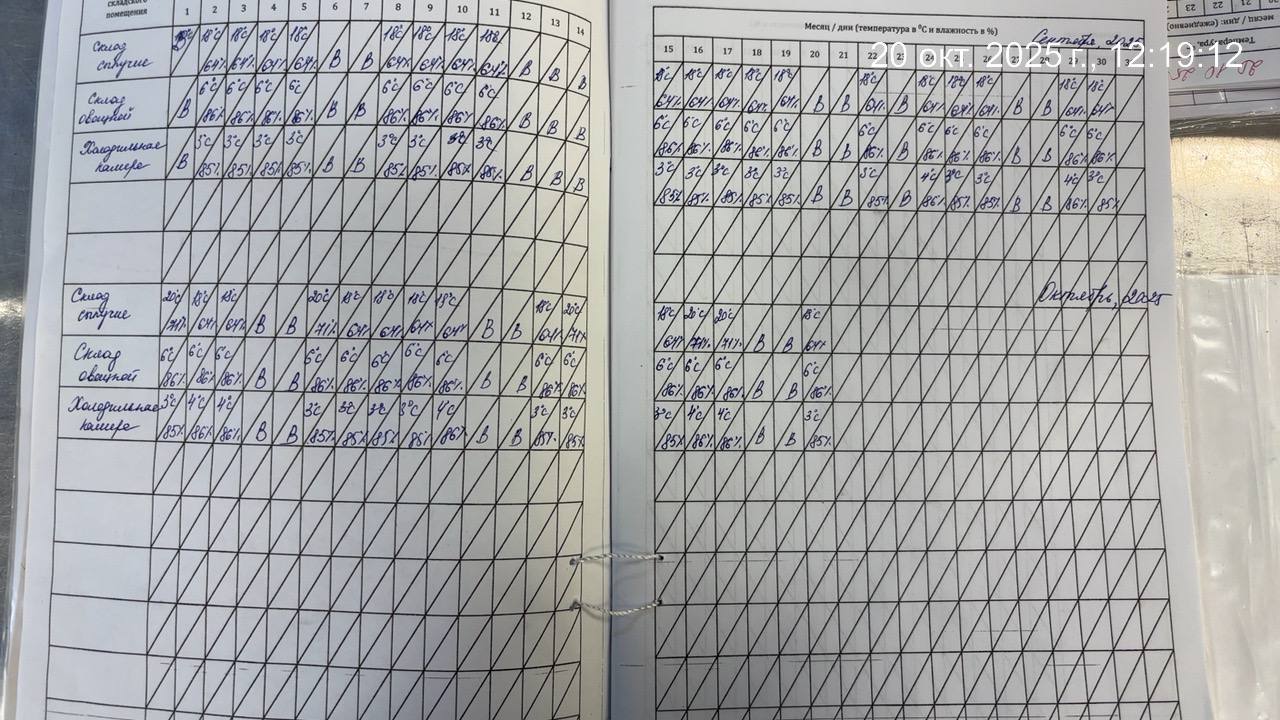 складского
помещения
1 2 3 4 5 6 7 8 9 10 11 12 13 14
Склад
сыпучие
18°c 18°c 18°c 18°c 18°c 18°c 18°c 18°c
64% 64% 64% 64% В В 64% 64% 64% 64% В В В
Склад
овощной
6°c 6°c 6°c 6°c 6°c 6°c 6°c 6°c
В 86% 86% 86% 86% В В 86% 86% 86% 86% В В В
Холодильная
камера
3°c 3°c 3°c 3°c 3°c 3°c 3°c 3°c
В 85% 85% 85% 85% В В 85% 85% 85% 85% В В В
Склад
сыпучие
20°c 18°c 18°c 20°c 18°c 18°c 18°c 18°c 18°c 20°c
71% 64% 64% В В 71% 64% 64% 64% 64% В В 64% 71%
Склад
овощной
6°c 6°c 6°c 6°c 6°c 6°c 6°c 6°c 6°c 6°c
86% 86% 86% В В 86% 86% 86% 86% 86% В В 86% 86%
Холодильная
камера
3°c 4°c 4°c 3°c 3°c 3°c 3°c 4°c 3°c 3°c
85% 86% 86% В В 85% 85% 85% 85% 86% В В 85% 85%
Месяц / дни (температура в ⁰С и влажность в %)
Сентябрь, 2025
20 окт. 2025 г., 12:19:12
15 16 17 18 19 20 21 22 23 24 25 26 27 28 29 30 31
18°c 18°c 18°c 18°c 18°c 18°c 18°c 18°c 18°c 18°c 18°c
64% 64% 64% 64% 64% В В 64% В 64% 64% 64% В В 64% 64%
6°c 6°c 6°c 6°c 6°c 6°c 6°c 6°c 6°c 6°c 6°c
86% 86% 86% 86% 86% В В 86% В 86% 86% 86% В В 86% 86%
3°c 3°c 3°c 3°c 3°c 3°c 4°c 3°c 3°c 4°c 3°c
85% 85% 85% 85% 85% В В 85% В 86% 85% 85% В В 86% 85%
Октябрь, 2025
18°c 20°c 20°c 18°c
64% 71% 71% В В 64%
6°c 6°c 6°c 6°c
86% 86% 86% В В 86%
3°c 4°c 4°c 3°c
85% 86% 86% В В 85%